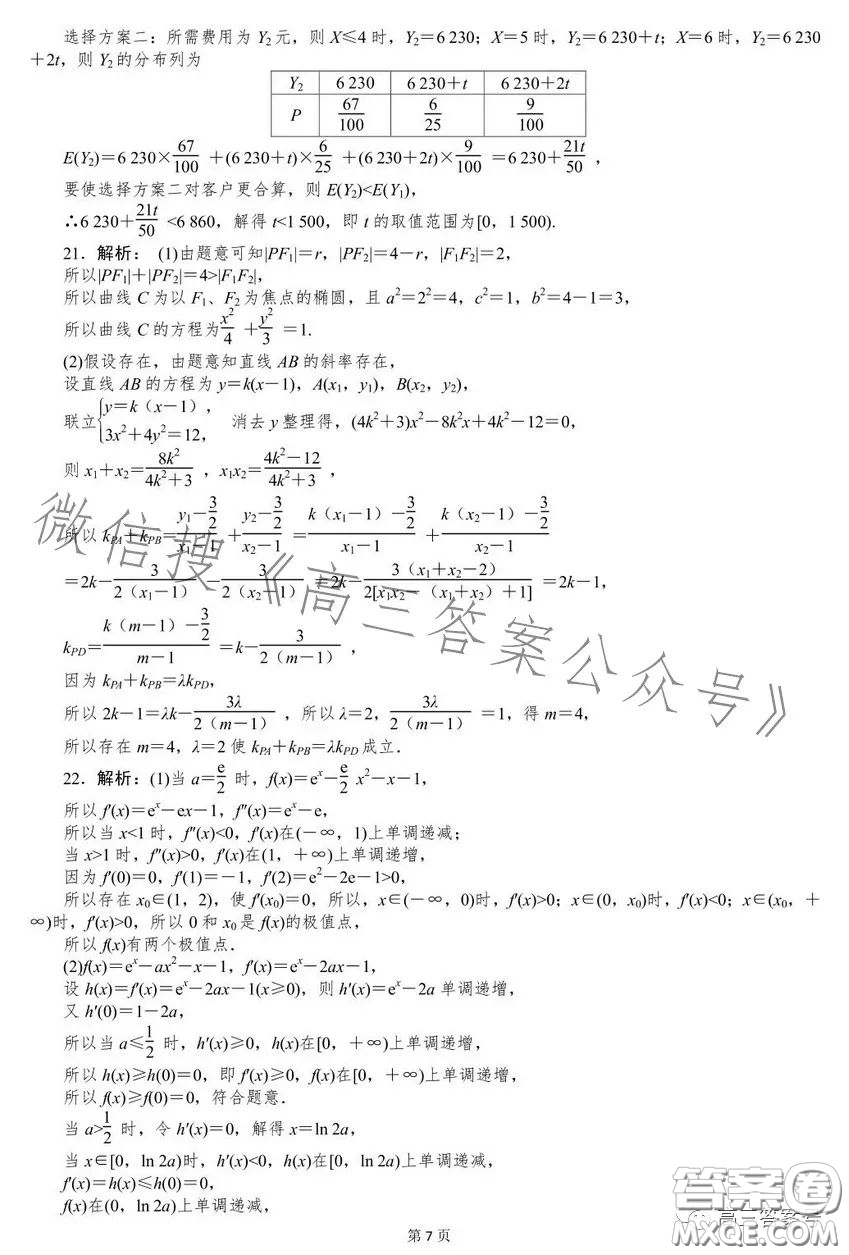 选择方案二：所需费用为 Y₂元，则 X≤4 时，Y₂=6 230；X=5 时，Y₂=6 230+t；X=6 时，Y₂=6 230
+2t，则 Y₂的分布列为
Y₂ 6 230 6 230+t 6 230+2t
P 67/100 6/25 9/100
E(Y₂)=6 230×67/100 +(6 230+t)×6/25 +(6 230+2t)×9/100 =6 230+21t/50 ，
要使选择方案二对客户更合算，则 E(Y₂)<E(Y₁)，
∴6 230+21t/50 <6 860，解得 t<1 500，即 t 的取值范围为[0，1 500).
21．解析： (1)由题意可知|PF₁|=r，|PF₂|=4-r，|F₁F₂|=2，
所以|PF₁|+|PF₂|=4>|F₁F₂|，
所以曲线 C 为以 F₁、F₂为焦点的椭圆，且 a²=2²=4，c²=1，b²=4-1=3，
所以曲线 C 的方程为x²/4 +y²/3 =1.
(2)假设存在，由题意知直线 AB 的斜率存在，
设直线 AB 的方程为 y=k(x-1)，A(x₁，y₁)，B(x₂，y₂)，
联立{y=k（x-1），3x²+4y²=12， 消去 y 整理得，(4k²+3)x²-8k²x+4k²-12=0，
则 x₁+x₂=8k²/(4k²+3) ，x₁x₂=(4k²-12)/(4k²+3) ，
所以 k_PA+k_PB=(y₁-3/2)/(x₁-1) +(y₂-3/2)/(x₂-1) =(k（x₁-1）-3/2)/(x₁-1) +(k（x₂-1）-3/2)/(x₂-1)
=2k-3/(2（x₁-1）) -3/(2（x₂-1）) =2k-3（x₁+x₂-2）/(2[x₁x₂-（x₁+x₂）+1]) =2k-1，
k_PD=(k（m-1）-3/2)/(m-1) =k-3/(2（m-1）) ，
因为 k_PA+k_PB=λk_PD，
所以 2k-1=λk-3λ/(2（m-1）) ，所以 λ=2，3λ/(2（m-1）) =1，得 m=4，
所以存在 m=4，λ=2 使 k_PA+k_PB=λk_PD成立．
22．解析：(1)当 a=e/2 时，f(x)=eˣ-e/2 x²-x-1，
所以 f′(x)=eˣ-ex-1，f″(x)=eˣ-e，
所以当 x<1 时，f″(x)<0，f′(x)在(-∞，1)上单调递减；
当 x>1 时，f″(x)>0，f′(x)在(1，+∞)上单调递增，
因为 f′(0)=0，f′(1)=-1，f′(2)=e²-2e-1>0，
所以存在 x₀∈(1，2)，使 f′(x₀)=0，所以，x∈(-∞，0)时，f′(x)>0；x∈(0，x₀)时，f′(x)<0；x∈(x₀，+
∞)时，f′(x)>0，所以 0 和 x₀是 f(x)的极值点，
所以 f(x)有两个极值点．
(2)f(x)=eˣ-ax²-x-1，f′(x)=eˣ-2ax-1，
设 h(x)=f′(x)=eˣ-2ax-1(x≥0)，则 h′(x)=eˣ-2a 单调递增，
又 h′(0)=1-2a，
所以当 a≤1/2 时，h′(x)≥0，h(x)在[0，+∞)上单调递增，
所以 h(x)≥h(0)=0，即 f′(x)≥0，f(x)在[0，+∞)上单调递增，
所以 f(x)≥f(0)=0，符合题意．
当 a>1/2 时，令 h′(x)=0，解得 x=ln 2a，
当 x∈[0，ln 2a)时，h′(x)<0，h(x)在[0，ln 2a)上单调递减，
f′(x)=h(x)≤h(0)=0，
f(x)在(0，ln 2a)上单调递减，
第 7 页
微信搜《高三答案公众号》
答案圈
MXQE.COM